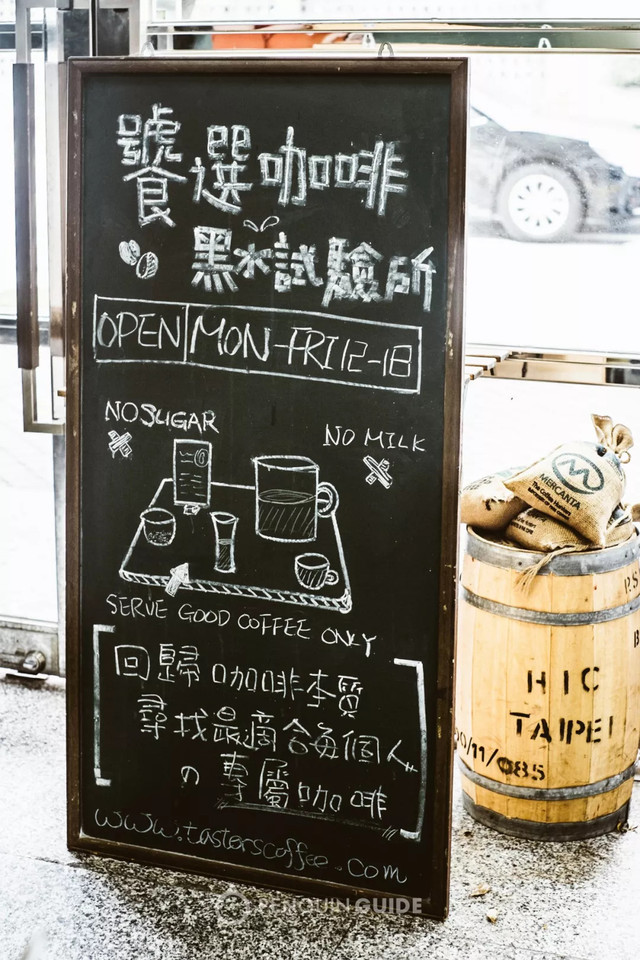 饕選咖啡
黑水試驗所
OPEN MON-FRI 12-18
NO SUGAR
NO MILK
SERVE GOOD COFFEE ONLY
回歸咖啡本質
尋找最適合每個人
の專屬咖啡
www.tasterscoffee.com
M
MERCANTA
The Coffee Hunters
HIC
TAIPEI
00/11/085
PENGUIN GUIDE